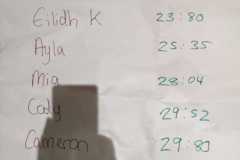 Eilidh K 23:80
Ayla 25:35
Mia 28:04
Cody 29:52
Cameron